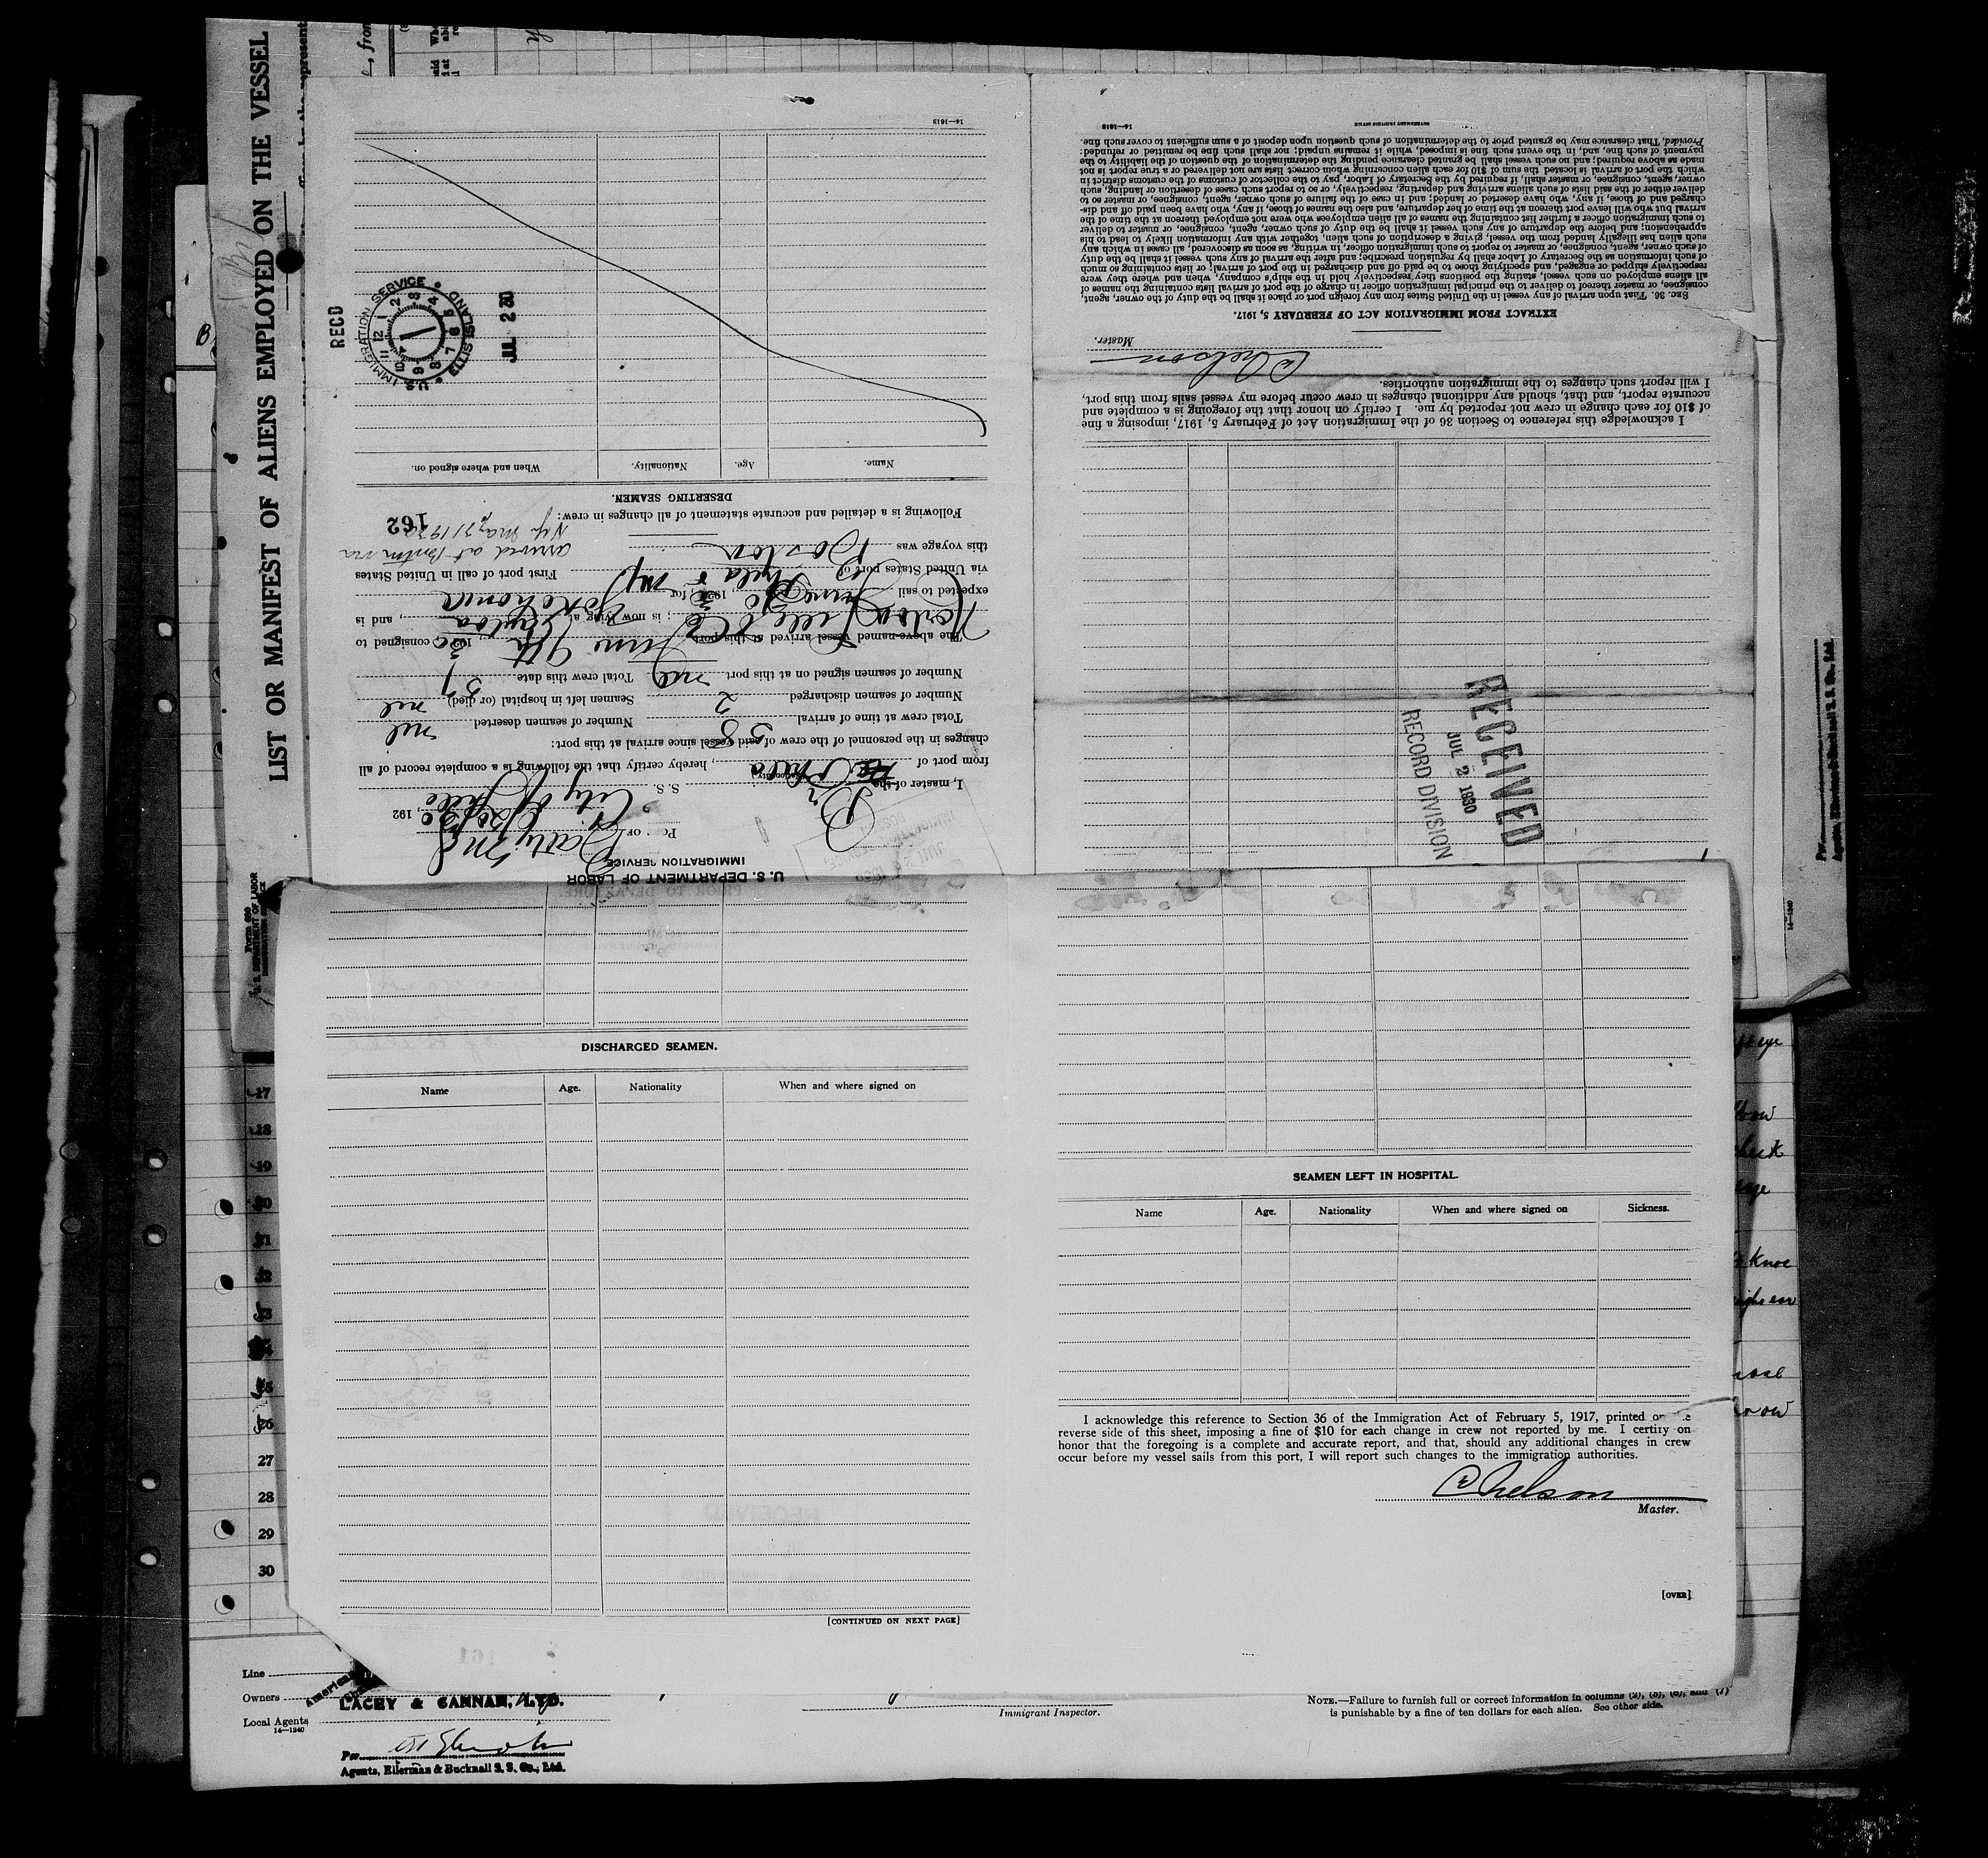 LIST OR MANIFEST OF ALIENS EMPLOYED ON THE VESSEL
Form 689
U. S. DEPARTMENT OF LABOR
U. S. DEPARTMENT OF LABOR
IMMIGRATION SERVICE
Balto Md
192
I, master of the Br S. S. City of
from port of , hereby certify that the following is a complete record of all
changes in the personnel of the crew of said vessel since arrival at this port:
Total crew at time of arrival Number of seamen deserted nil
Number of seamen discharged 2 Seamen left in hospital (or died) nil
Number of seamen signed on at this port nil Total crew this date 57
The above-named vessel arrived at this port June 9th 1930 consigned to
Norton Lilly & Co ; is now lying at , and is
expected to sail June 192 for Yokohama
via United States port of Phila & NY First port of call in United States
this voyage was Boston
arrived at Boston via
NY May 31 1930
162
Following is a detailed and accurate statement of all changes in crew:
DESERTING SEAMEN.
Name. Age. Nationality. When and where signed on.
RECD
U.S. IMMIGRATION SERVICE
JUL 2 30
14—1613
RECEIVED
JUL 2 1930
RECORD DIVISION
I acknowledge this reference to Section 36 of the Immigration Act of February 5, 1917, imposing a fine
of $10 for each change in crew not reported by me. I certify on honor that the foregoing is a complete and
accurate report, and that, should any additional changes in crew occur before my vessel sails from this port,
I will report such changes to the immigration authorities.
C Nelson
Master.
EXTRACT FROM IMMIGRATION ACT OF FEBRUARY 5, 1917.
SEC. 36. That upon arrival of any vessel in the United States from any foreign port or place it shall be the duty of the owner, agent,
consignee, or master thereof to deliver to the principal immigration officer in charge of the port of arrival lists containing the names of
all aliens employed on such vessel, stating the positions they respectively hold in the ship's company, when and where they were
respectively shipped or engaged, and specifying those to be paid off and discharged in the port of arrival; or lists containing so much
of such information as the Secretary of Labor shall by regulation prescribe; and after the arrival of any such vessel it shall be the duty
of such owner, agent, consignee, or master to report to such immigration officer, in writing, as soon as discovered, all cases in which any
such alien has illegally landed from the vessel, giving a description of such alien, together with any information likely to lead to his
apprehension; and before the departure of any such vessel it shall be the duty of such owner, agent, consignee, or master to deliver
to such immigration officer a further list containing the names of all alien employees who were not employed thereon at the time of the
arrival but who will leave port thereon at the time of her departure, and also the names of those, if any, who have been paid off and dis-
charged and of those, if any, who have deserted or landed; and in case of the failure of such owner, agent, consignee, or master so to
deliver either of the said lists of such aliens arriving and departing, respectively, or so to report such cases of desertion or landing, such
owner, agent, consignee, or master shall, if required by the Secretary of Labor, pay to the collector of customs of the customs district in
which the port of arrival is located the sum of $10 for each alien concerning whom correct lists are not delivered or a true report is not
made as above required; and no such vessel shall be granted clearance pending the determination of the question of the liability to the
payment of such fine, and, in the event such fine is imposed, while it remains unpaid; nor shall such fine be remitted or refunded:
Provided, That clearance may be granted prior to the determination of such question upon deposit of a sum sufficient to cover such fine.
14—1613
GOVERNMENT PRINTING OFFICE
DISCHARGED SEAMEN.
Name Age. Nationality When and where signed on
[CONTINUED ON NEXT PAGE]
SEAMEN LEFT IN HOSPITAL.
Name Age. Nationality When and where signed on Sickness.
I acknowledge this reference to Section 36 of the Immigration Act of February 5, 1917, printed on
reverse side of this sheet, imposing a fine of $10 for each change in crew not reported by me. I certify on
honor that the foregoing is a complete and accurate report, and that, should any additional changes in crew
occur before my vessel sails from this port, I will report such changes to the immigration authorities.
C Nelson
Master.
[OVER]
17
18
19
20
21
22
23
26
27
28
29
30
eye
knee
Line
Owners
LACEY & CANNAN, LTD.
Local Agents
14—1240
Per
Agents, Ellerman & Bucknall S. S. Co., Ltd.
Immigrant Inspector.
NOTE.—Failure to furnish full or correct information in columns (2), (5), (6), and (7)
is punishable by a fine of ten dollars for each alien. See other side.
Per
Agents, Ellerman & Bucknall S. S. Co., Ltd.
14—1240